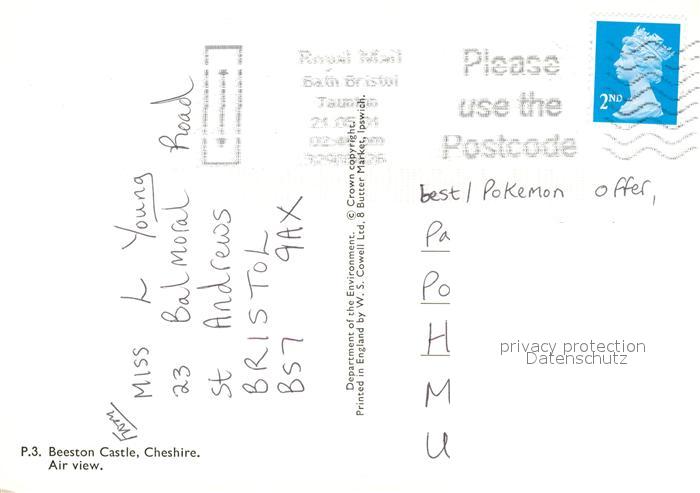 Royal Mail
Bath Bristol
Taunton
Please
use the
Postcode
2ND
MISS L Young
23 Balmoral Road
St Andrews
BRISTOL
BS7 9AX
Department of the Environment. © Crown copyright.
Printed in England by W. S. Cowell Ltd, 8 Butter Market, Ipswich.
best / Pokemon offer,
Pa
Po
H
M
U
privacy protection
Datenschutz
P.3. Beeston Castle, Cheshire.
Air view.